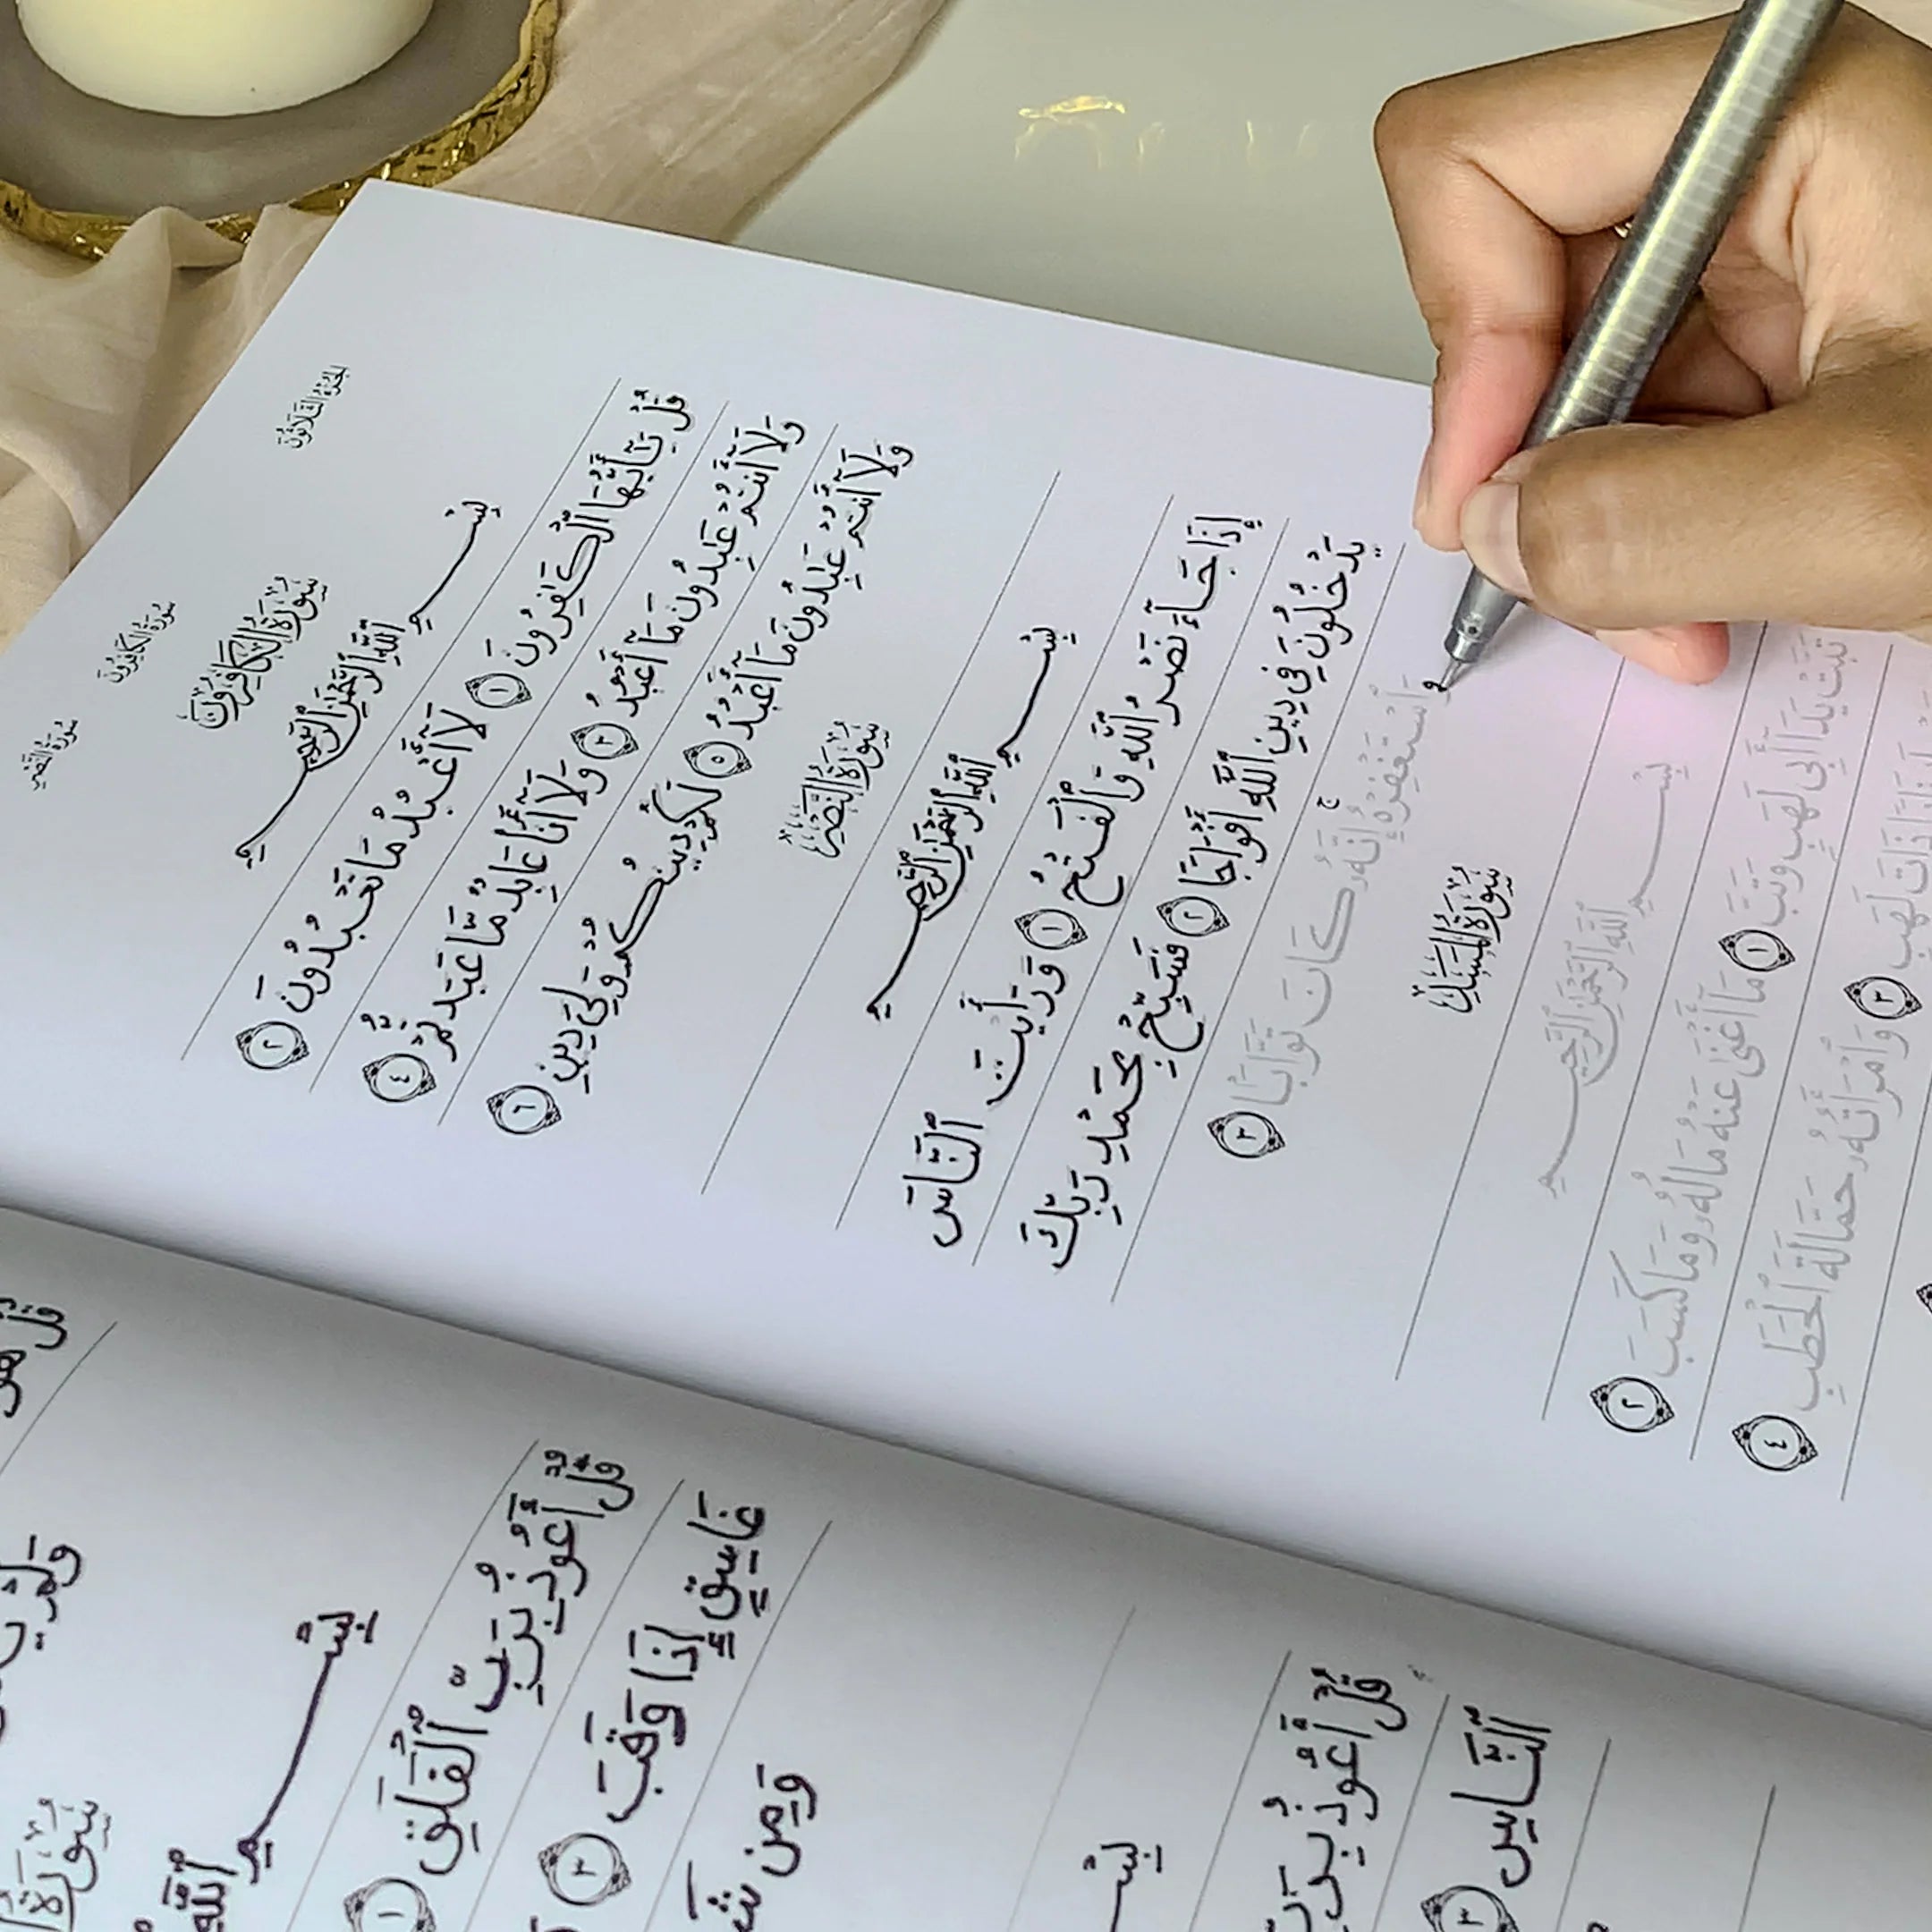 الجزء الثلاثون
سورة الكافرون
سورة النصر
سُورَةُ الْكَافِرُونَ
بِسْمِ ٱللَّهِ ٱلرَّحْمَٰنِ ٱلرَّحِيمِ
قُلْ يَٰٓأَيُّهَا ٱلْكَٰفِرُونَ ١ لَآ أَعْبُدُ مَا تَعْبُدُونَ ٢
وَلَآ أَنتُمْ عَٰبِدُونَ مَآ أَعْبُدُ ٣ وَلَآ أَنَا۠ عَابِدٌ مَّا عَبَدتُّمْ ٤
وَلَآ أَنتُمْ عَٰبِدُونَ مَآ أَعْبُدُ ٥ لَكُمْ دِينُكُمْ وَلِيَ دِينِ ٦
سُورَةُ النَّصْرِ
بِسْمِ ٱللَّهِ ٱلرَّحْمَٰنِ ٱلرَّحِيمِ
إِذَا جَآءَ نَصْرُ ٱللَّهِ وَٱلْفَتْحُ ١ وَرَأَيْتَ ٱلنَّاسَ
يَدْخُلُونَ فِي دِينِ ٱللَّهِ أَفْوَاجًا ٢ فَسَبِّحْ بِحَمْدِ رَبِّكَ
وَٱسْتَغْفِرْهُ ۚ إِنَّهُۥ كَانَ تَوَّابًۢا ٣
سُورَةُ الْمَسَدِ
بِسْمِ ٱللَّهِ ٱلرَّحْمَٰنِ ٱلرَّحِيمِ
تَبَّتْ يَدَآ أَبِي لَهَبٍ وَتَبَّ ١ مَآ أَغْنَىٰ عَنْهُ مَالُهُۥ وَمَا كَسَبَ ٢
نَارًا ذَاتَ لَهَبٍ ٣ وَٱمْرَأَتُهُۥ حَمَّالَةَ ٱلْحَطَبِ ٤
قُلْ هُوَ
وَلَمْ
سُورَةُ
بِسْمِ ٱللَّهِ
قُلْ أَعُوذُ بِرَبِّ ٱلْفَلَقِ ١
غَاسِقٍ إِذَا وَقَبَ ٣
وَمِن شَ
بِسْمِ
قُلْ أَعُوذُ بِرَبِّ
ٱلنَّاسِ ٣